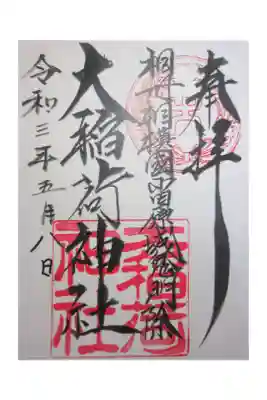 奉拝
相模國小田原城鬼門除
大稲荷神社
令和三年五月八日
大稲荷
神社